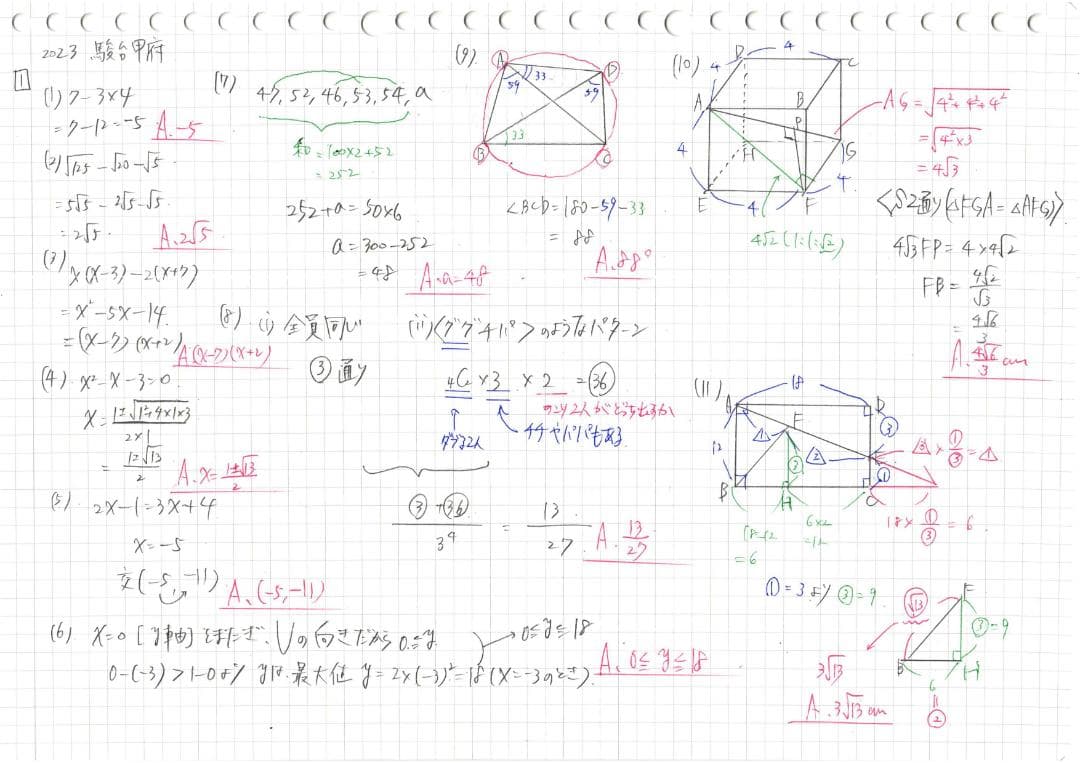 2023 駿台甲府
1
(1) 7-3×4
=7-12=-5 A.-5
(2) √125-√20-√5
=5√5-2√5-√5
=2√5 A.2√5
(3) x(x-3)-2(x+7)
=x²-5x-14
=(x-7)(x+2) A(x-7)(x+2)
(4) x²-x-3=0
x=1±√1+4×1×3/2×1
=1±√13/2 A.x=1±√13/2
(5) 2x-1=3x+4
x=-5
交(-5,-11) A.(-5,-11)
(6) x=0[y軸]をまたぎ、Uの向きだから0≦y
0-(-3)>1-0より yは、最大値 y=2×(-3)²=18(x=-3のとき)
0≦y≦18
A.0≦y≦18
(7)
47,52,46,53,54,a
和=100×2+52
=252
252+a=50×6
a=300-252
=48 A.a=48
(8) (i) 全員同じ
③通り
(ii)〈ググチパ〉のようなパターン
4C2×3×2=36
のこり2人がどっち出るか
グ出る2人
チチやパパもある
③+㊱/3⁴=13/27 A.13/27
(9)
A
D
B
C
59
33
59
33
∠BCD=180-59-33
=88
A.88°
(10)
D
4
C
4
A
B
P
4
H
G
4
E
4
F
4√2(1:1:√2)
AG=√4²+4²+4²
=√4²×3
=4√3
〈S2通り(△FGA=△AFG)〉
4√3FP=4×4√2
FP=4√2/√3
=4√6/3
A.4√6/3cm
(11)
18
A
D
E
③
12
①
B
H
C
18-12
=6
6×2
=12
18×①/③=6
①=3より③=9
E
√13
③=9
B
H
6
②
3√13
A.3√13cm